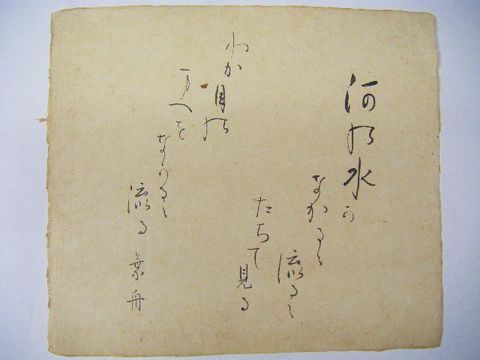 河の水か
なかるゝ
流るゝ
たちて見る
わか目の
まへを
なかるゝ
流る 葉舟